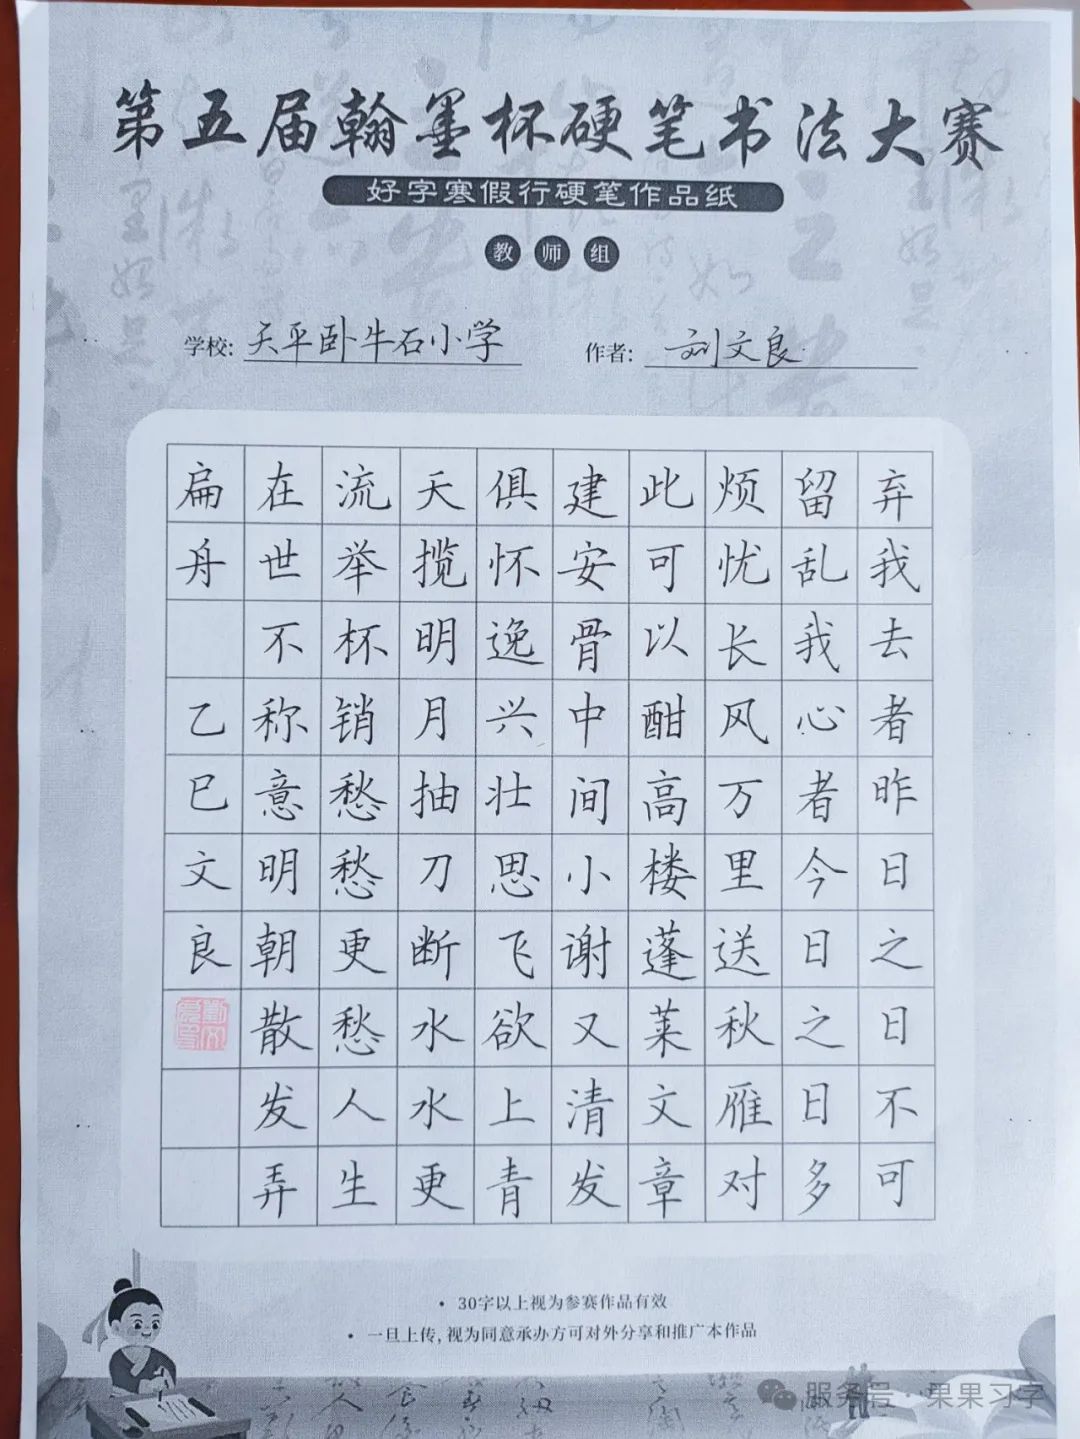 第五届翰墨杯硬笔书法大赛
好字寒假行硬笔作品纸
教师组
学校: 天平卧牛石小学
作者: 刘文良
弃我去者昨日之日不可
留乱我心者今日之日多
烦忧长风万里送秋雁对
此可以酣高楼蓬莱文章
建安骨中间小谢又清发
俱怀逸兴壮思飞欲上青
天揽明月抽刀断水水更
流举杯销愁愁更愁人生
在世不称意明朝散发弄
扁舟 乙巳文良
• 30字以上视为参赛作品有效
• 一旦上传,视为同意承办方可对外分享和推广本作品
服务号 · 果果习字